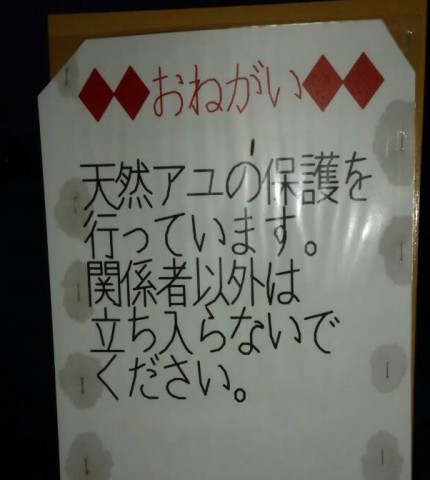 ♦♦おねがい♦♦
天然アユの保護を
行っています。
関係者以外は
立ち入らないで
ください。